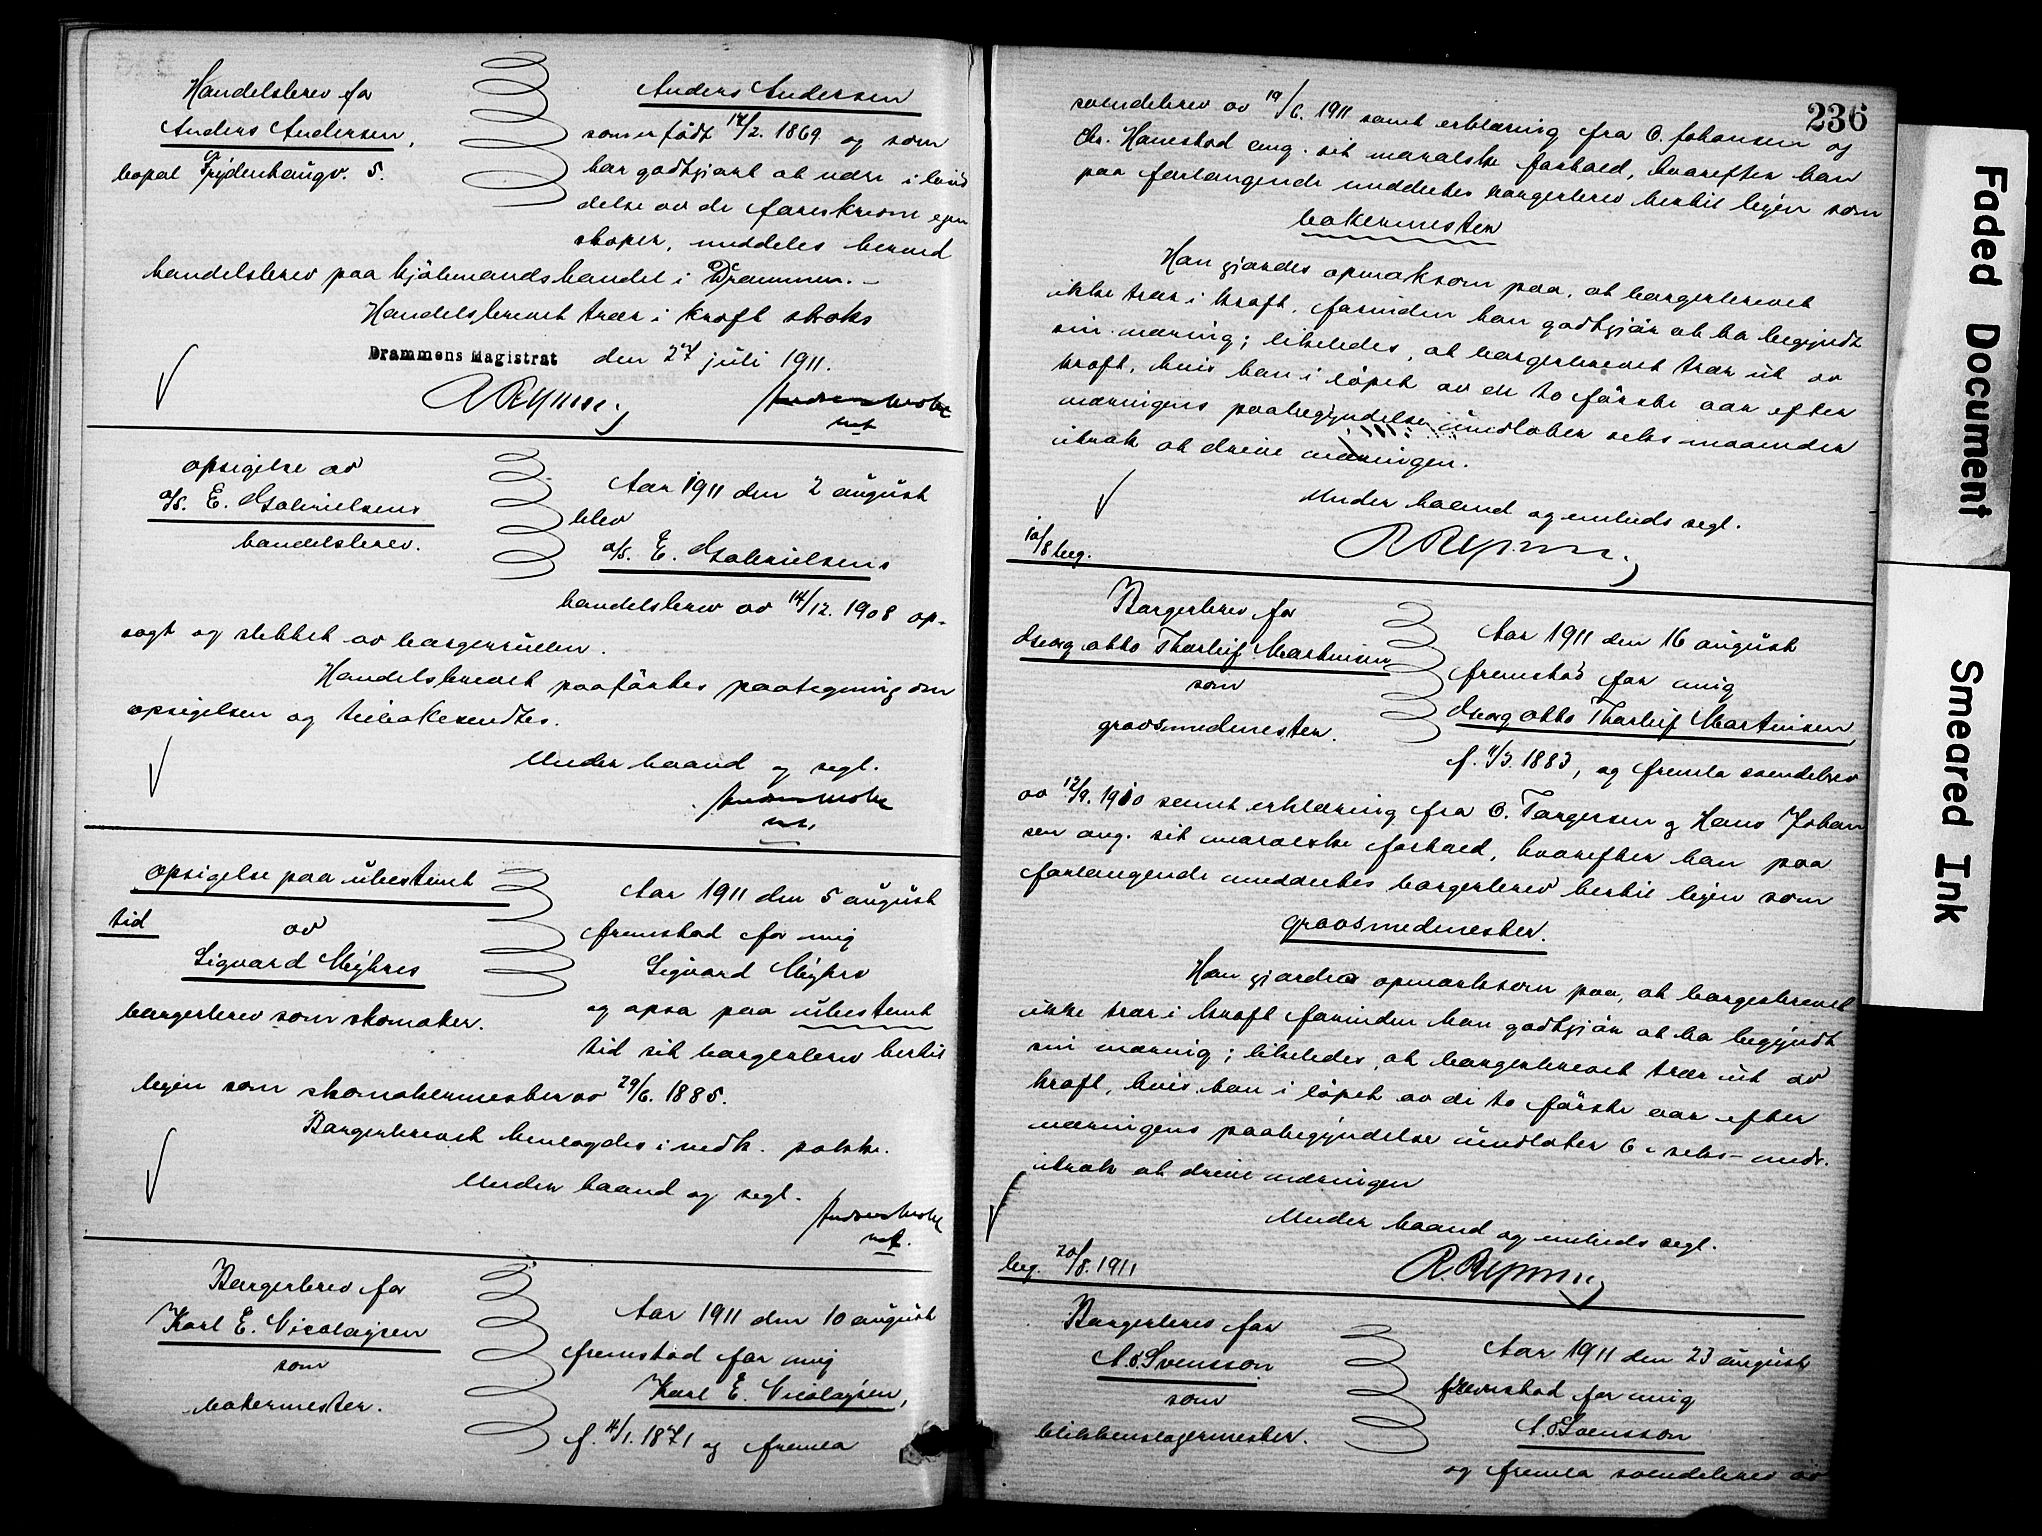 Handelsbrev for
Anders Andersen,
bopæl Frydenhaugv. 5.
Anders Andersen
som er født 17/2. 1869 og som
har godtgjort at være i besid
delse av de foreskrevne egen
skaper, meddeles herved
handelsbrev paa kjøbmandshandel i Drammen. –
Handelsbrevet trær i kraft straks
Drammens Magistrat den 27 juli 1911.
opsigelse av
a/s. E. Gabrielsens
handelsbrev.
Aar 1911 den 2 august
blev
a/s. E. Gabrielsens
handelsbrev av 14/12. 1908 op-
sagt og slettet av borgerrullen.
Handelsbrevet paaførtes paategning om
opsigelsen og tilbakesendtes.
Under haand og segl.
opsigelse paa ubestemt
tid
av
Sigvard Myhres
borgerbrev som skomaker.
Aar 1911 den 5 august
fremstod for mig
Sigvard Myhre
og opsa paa ubestemt
tid sit borgerbrev hertil
byen som skomakermester av 29/6. 1885.
Borgerbrevet henlagdes i vedk. pakke.
Under haand og segl.
Borgerbrev for
Karl E. Nicolaysen
som
bakermester.
Aar 1911 den 10 august
fremstod for mig
Karl E. Nicolaysen,
f. 14/1. 1871 og fremla
236
svendebrev av 19/6. 1911 samt erklæring fra O. Johansen og
Chr. Hanestad ang. sit moralske forhold, hvorefter han
paa forlangende meddeltes borgerbrev hertil byen som
bakermester
Han gjordes opmerksom paa, at borgerbrevet
ikke trær i kraft, forinden han godtgjør at ha begyndt
sin næring; likeledes, at borgerbrevet trær ut av
kraft, hvis han i løpet av de to første aar efter
næringens paabegyndelse undlater seks maaneder
itræk at drive næringen.
Under haand og embeds segl.
10/8 beg.
Borgerbrev for
Georg Otto Thorleif Martinsen
som
grovsmedmester.
Aar 1911 den 16 august
fremstod for mig
Georg Otto Thorleif Martinsen
f. 4/3. 1883, og fremla svendebrev
av 12/9. 1910 samt erklæring fra O. Torgersen og Hans Johan
sen ang. sit moralske forhold, hvorefter han paa
forlangende meddeltes borgerbrev hertil byen som
grovsmedmester.
Han gjordes opmerksom paa, at borgerbrevet
ikke trær i kraft forinden han godtgjør at ha begyndt
sin næring; likeledes, at borgerbrevet trær ut av
kraft, hvis han i løpet av de to første aar efter
næringens paabegyndelse undlater 6 – seks – mdr.
itræk at drive næringen
Under haand og embeds segl.
beg. 20/8. 1911
Borgerbrev for
A. O. Svensson
som
blikkenslagermester.
Aar 1911 den 23 august
fremstod for mig
A. O. Svensson
og fremla svendebrev av
Faded Document
Smeared Ink